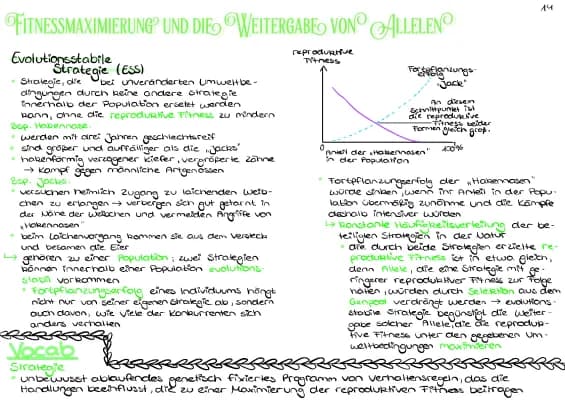 14
Fitnessmaximierung und die Weitergabe von Allelen
Evolutionsstabile
Strategie (ESS)
• Strategie, die bei unveränderten Umweltbe-
dingungen durch keine andere Strategie
innerhalb der Population ersetzt werden
kann, ohne die reproduktive Fitness zu mindern
Bsp. Hakennase:
• werden mit drei Jahren geschlechtsreif
• sind größer und auffälliger als die „Jacks"
• hakenförmig verzogener Kiefer, vergrößerte Zähne
→ Kampf gegen männliche Artgenossen
Bsp. Jacks:
• versuchen heimlich Zugang zu laichenden Weib-
chen zu erlangen → verbergen sich gut getarnt in
der Nähe der Weibchen und vermeiden Angriffe von
„Hakennasen"
• beim Laichvorgang kommen sie aus dem Versteck
und besamen die Eier
↳ gehören zu einer Population; zwei Strategien
können innerhalb einer Population evolutions-
stabil vorkommen
• Fortpflanzungserfolg eines Individuums hängt
nicht nur von seiner eigenen Strategie ab, sondern
auch davon, wie viele der Konkurrenten sich
anders verhalten
reproduktive
Fitness
Fortpflanzungs-
erfolg
„Jack"
An diesem
Schnittpunkt ist
die reproduktive
Fitness beider
Formen gleich groß.
0
100%
Anteil der „Hakennasen"
in der Population
• Fortpflanzungserfolg der „Hakennasen"
würde sinken, wenn ihr Anteil in der Popu-
lation übermäßig zunähme und die Kämpfe
deshalb intensiver würden
↳ Konstante Häufigkeitsverteilung der be-
teiligten Strategien in der Natur
• die durch beide Strategien erzielte re-
produktive Fitness ist in etwa gleich,
denn Allele, die eine Strategie mit ge-
ringerer reproduktiver Fitness zur Folge
hätten, würden durch Selektion aus dem
Genpool verdrängt werden → evolutions-
stabile Strategie begünstigt die Weiter-
gabe solcher Allele, die die reproduk-
tive Fitness unter den gegebenen Um-
weltbedingungen maximieren
Vocab
Strategie
• unbewusst ablaufendes genetisch fixiertes Programm von Verhaltensregeln, das die
Handlungen beeinflusst, die zu einer Maximierung der reproduktiven Fitness beitragen